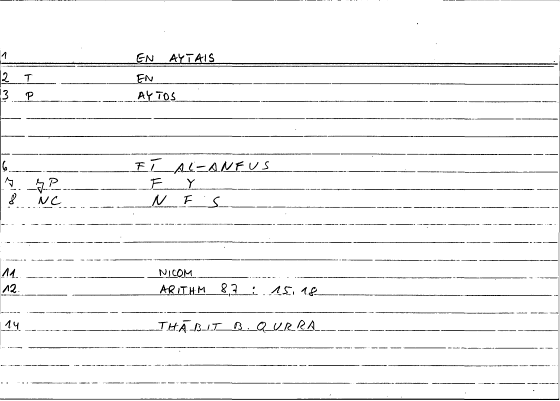 1 EN AYTAIS
2 T EN
3 P AYTOS
6 FĪ AL-ANFUS
7 JP F Y
8 NC N F S
11 NICOM
12 ARITHM 87 : 15.18
14 THĀBIT B. QURRA